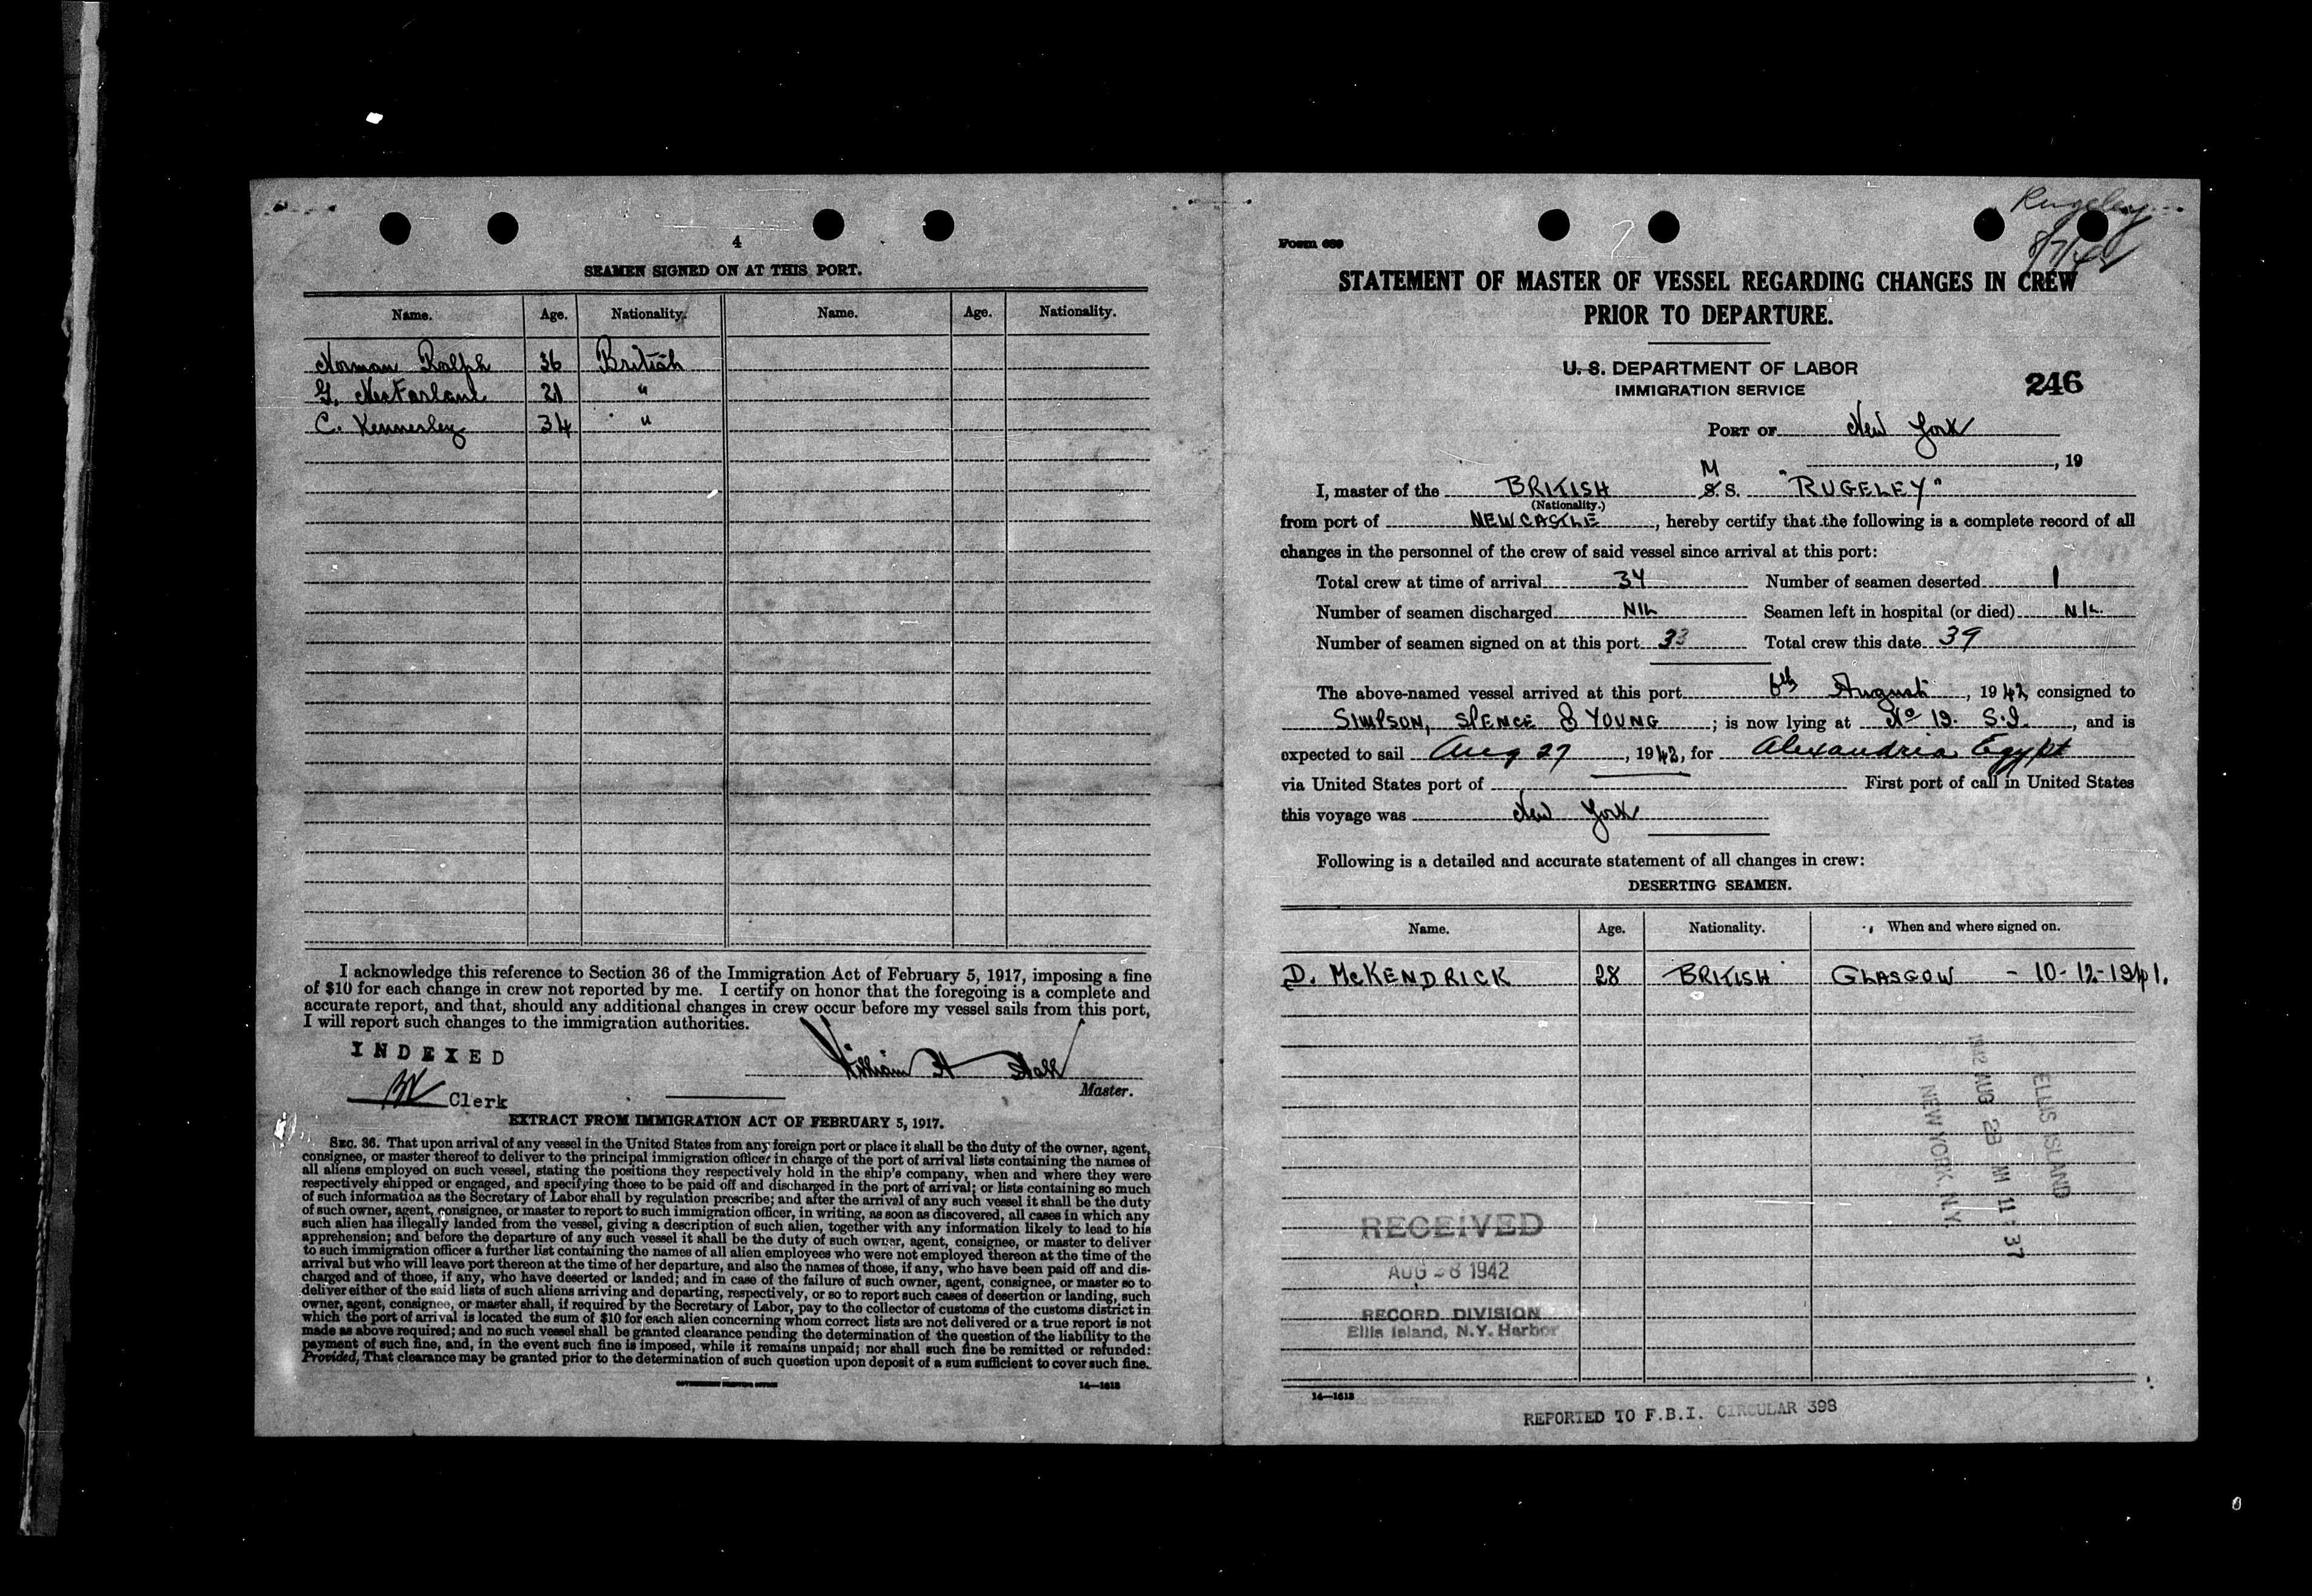 4
SEAMEN SIGNED ON AT THIS PORT.
Name. Age. Nationality. Name. Age. Nationality.
Norman Ralph 36 British
G. MacFarlane 21 "
C. Kennerley 34 "
I acknowledge this reference to Section 36 of the Immigration Act of February 5, 1917, imposing a fine
of $10 for each change in crew not reported by me. I certify on honor that the foregoing is a complete and
accurate report, and that, should any additional changes in crew occur before my vessel sails from this port,
I will report such changes to the immigration authorities.
INDEXED
William H
Master.
Clerk
EXTRACT FROM IMMIGRATION ACT OF FEBRUARY 5, 1917.
SEC. 36. That upon arrival of any vessel in the United States from any foreign port or place it shall be the duty of the owner, agent,
consignee, or master thereof to deliver to the principal immigration officer in charge of the port of arrival lists containing the names of
all aliens employed on such vessel, stating the positions they respectively hold in the ship's company, when and where they were
respectively shipped or engaged, and specifying those to be paid off and discharged in the port of arrival; or lists containing so much
of such information as the Secretary of Labor shall by regulation prescribe; and after the arrival of any such vessel it shall be the duty
of such owner, agent, consignee, or master to report to such immigration officer, in writing, as soon as discovered, all cases in which any
such alien has illegally landed from the vessel, giving a description of such alien, together with any information likely to lead to his
apprehension; and before the departure of any such vessel it shall be the duty of such owner, agent, consignee, or master to deliver
to such immigration officer a further list containing the names of all alien employees who were not employed thereon at the time of the
arrival but who will leave port thereon at the time of her departure, and also the names of those, if any, who have been paid off and dis-
charged and of those, if any, who have deserted or landed; and in case of the failure of such owner, agent, consignee, or master so to
deliver either of the said lists of such aliens arriving and departing, respectively, or so to report such cases of desertion or landing, such
owner, agent, consignee, or master shall, if required by the Secretary of Labor, pay to the collector of customs of the customs district in
which the port of arrival is located the sum of $10 for each alien concerning whom correct lists are not delivered or a true report is not
made as above required; and no such vessel shall be granted clearance pending the determination of the question of the liability to the
payment of such fine, and, in the event such fine is imposed, while it remains unpaid; nor shall such fine be remitted or refunded:
Provided, That clearance may be granted prior to the determination of such question upon deposit of a sum sufficient to cover such fine.
GOVERNMENT PRINTING OFFICE 14—1613
Rugeley
Form 689
STATEMENT OF MASTER OF VESSEL REGARDING CHANGES IN CREW
PRIOR TO DEPARTURE.
U. S. DEPARTMENT OF LABOR
IMMIGRATION SERVICE
246
PORT OF New York
, 19
I, master of the BRITISH M S. S. "RUGELEY"
(Nationality.)
from port of NEWCASTLE, hereby certify that the following is a complete record of all
changes in the personnel of the crew of said vessel since arrival at this port:
Total crew at time of arrival 34 Number of seamen deserted 1
Number of seamen discharged NIL Seamen left in hospital (or died) NIL
Number of seamen signed on at this port Total crew this date 39
The above-named vessel arrived at this port 6th August, 1942, consigned to
SIMPSON, SPENCE & YOUNG; is now lying at No 19. S.I., and is
expected to sail Aug 27, 1942, for Alexandria Egypt
via United States port of First port of call in United States
this voyage was New York
Following is a detailed and accurate statement of all changes in crew:
DESERTING SEAMEN.
Name. Age. Nationality. When and where signed on.
D. McKENDRICK 28 BRITISH GLASGOW - 10-12-1941.
ELLIS ISLAND
1942 AUG 28 AM 11 37
NEW YORK, N.Y.
RECEIVED
AUG 28 1942
RECORD DIVISION
Ellis Island, N.Y. Harbor
14—1613
REPORTED TO F.B.I. CIRCULAR 398